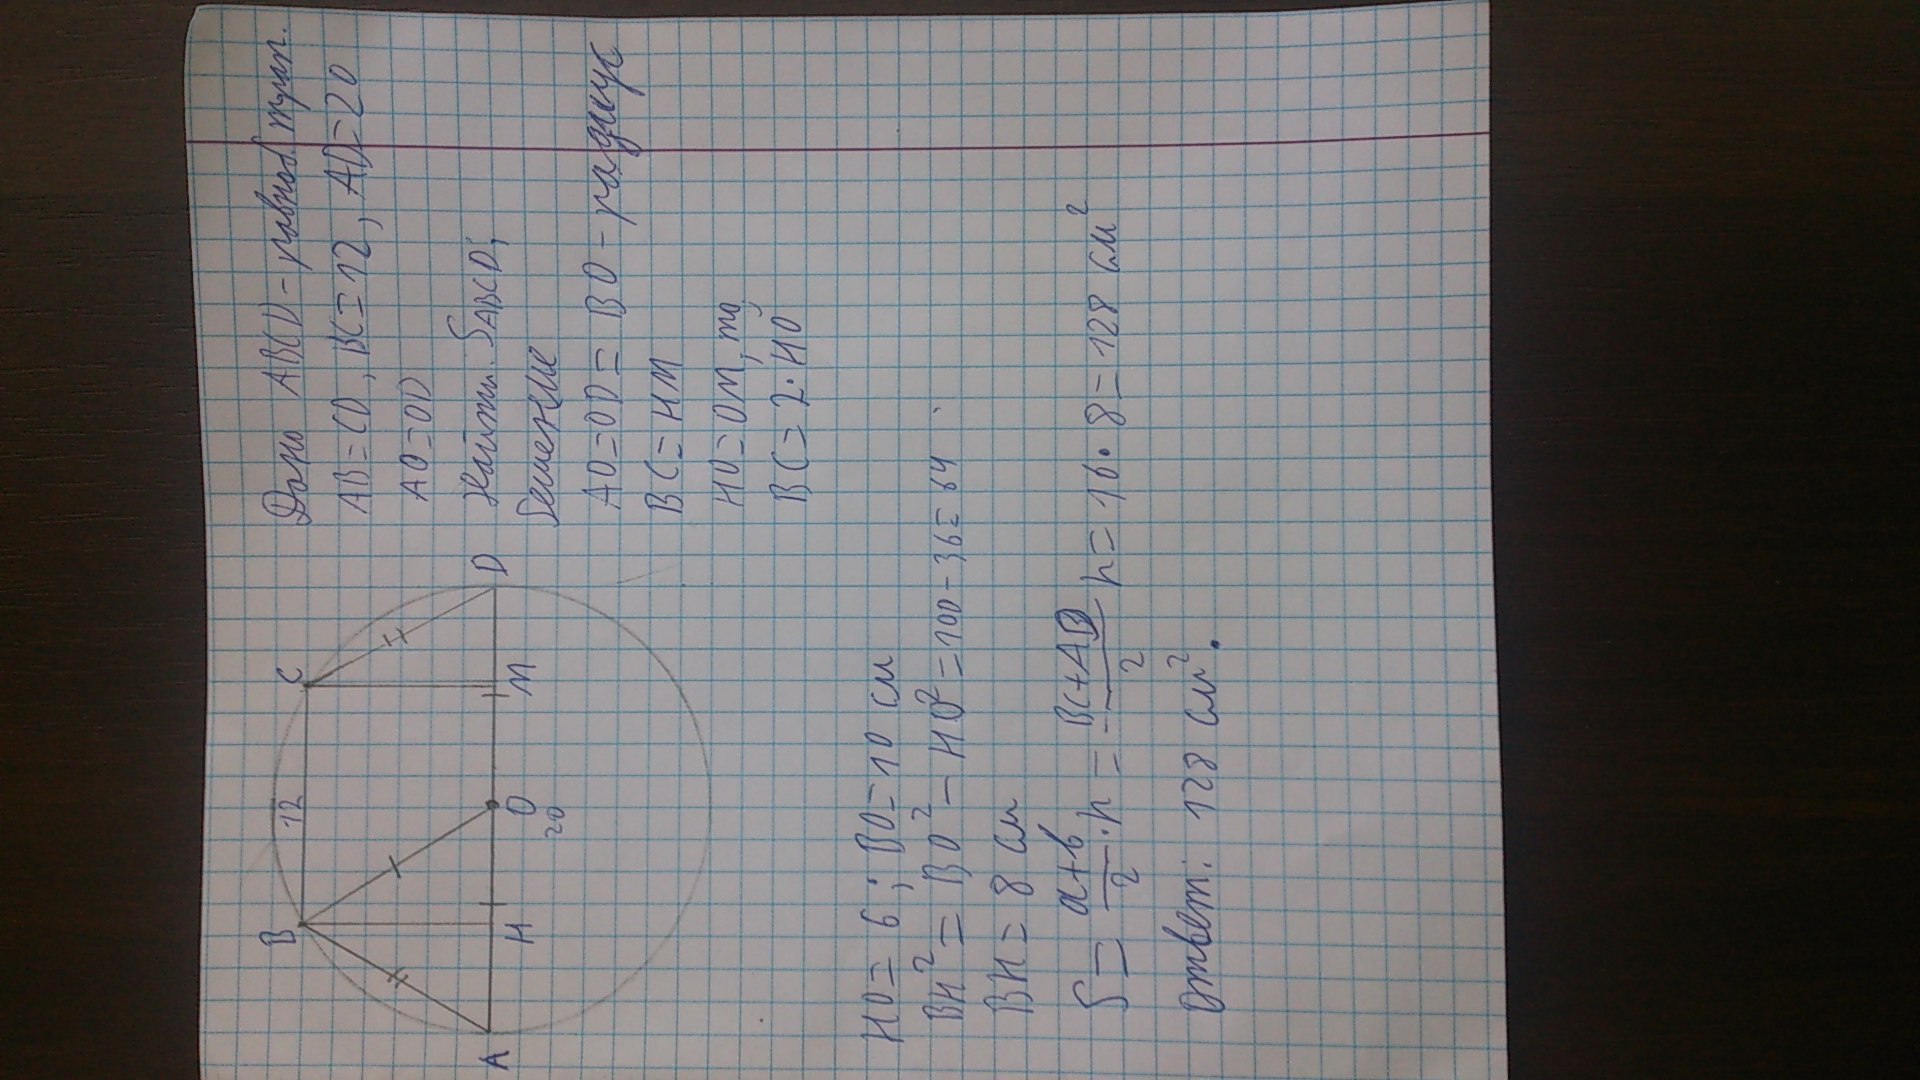 B
12
C
A
H
O
20
M
D
Дано ABCD - равноб. трап.
AB = CD, BC = 12, AD = 20
AO = OD
Найти. SABCD;
Решение
AO = OD = BO - радиус
BC = HM
HO = OM, то
BC = 2·HO
HO = 6; BO = 10 см
BH² = BO² - HO² = 100 - 36 = 64
BH = 8 см
S = a+b/2 · h = BC+AD/2 h = 16·8 = 128 см²
Ответ: 128 см².